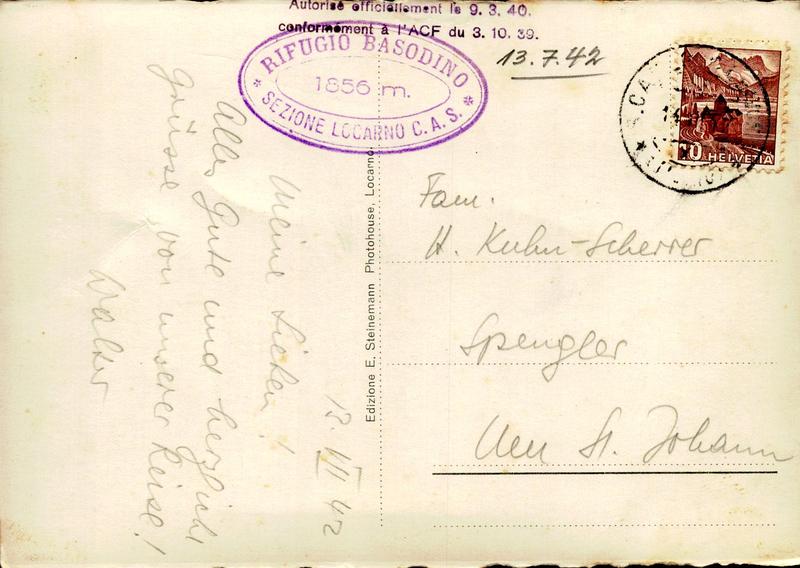 Autorisé officiellement le 9. 3. 40.
conformément à l'ACF du 3. 10. 39.
RIFUGIO BASODINO
1856 m.
* SEZIONE LOCARNO C. A. S. *
13.7.42
10 HELVETIA
13. VII 42
Meine Lieben!
Alles Gute und herzlich
Grüsse von unserer Reise!
Walter
Edizione E. Steinemann Photohouse, Locarno
Fam.
H. Kuhn-Scherrer
Spengler
Neu St. Johann